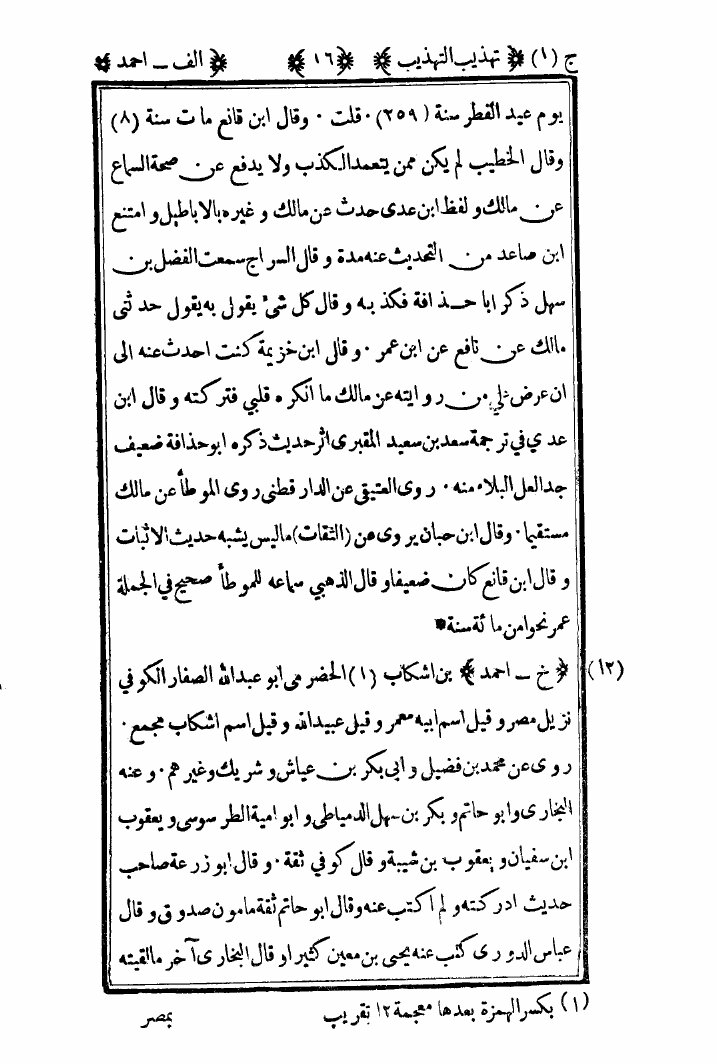 ج (١) ﴿ تهذيب التهذيب ﴾ ﴿ ١٦ ﴾ ﴿ الف ـ احمد ﴾
يوم عيد الفطر سنة (٢٥٩) · قلت · وقال ابن قانع مات سنة (٨)
وقال الخطيب لم يكن ممن يتعمد الكذب ولا يدفع عن صحة السماع
عن مالك و لفظ ابن عدى حدث عن مالك و غيره بالاباطيل و امتنع
ابن صاعد من التحديث عنه مدة و قال السراج سمعت الفضل بن
سهل ذكر ابا حذافة فكذبه و قال كل شئ يقول به يقول حدثنى
مالك عن نافع عن ابن عمر · و قال ابن خزيمة كنت احدث عنه الى
ان عرض لي من روايته عن مالك ما انكره قلبي فتركته و قال ابن
عدي في ترجمة سعد بن سعيد المقبرى اثر حديث ذكره ابو حذافة ضعيف
جدا لعل البلاء منه · روى العتيقى عن الدار قطنى روى الموطأ عن مالك
مستقيما · وقال ابن حبان يروى عن (الثقات) ماليس يشبه حديث الاثبات
و قال ابن قانع كان ضعيفا و قال الذهبي سماعه للموطأ صحيح في الجملة
عمر نحوا من مائة سنة *
(١٢) ﴿ خ ـ احمد ﴾ بن اشكاب (١) الحضرمى ابو عبدالله الصفار الكوفي
نزيل مصر و قيل اسم ابيه معمر و قيل عبيدالله و قيل اسم اشكاب مجمع ·
روى عن محمد بن فضيل و ابى بكر بن عياش و شريك و غيرهم · و عنه
البخارى و ابو حاتم و بكر بن سهل الدمياطى و ابو امية الطرسوسى و يعقوب
ابن سفيان و يعقوب بن شيبة و قال كوفي ثقة · و قال ابو زرعة صاحب
حديث ادركته و لم اكتب عنه وقال ابو حاتم ثقة مامون صدوق و قال
عباس الدورى كتب عنه يحيى بن معين كثيرا و قال البخارى آخر مالقيته
(١) بكسر الهمزة بعدها معجمة ١٢ تقريب
بمصر